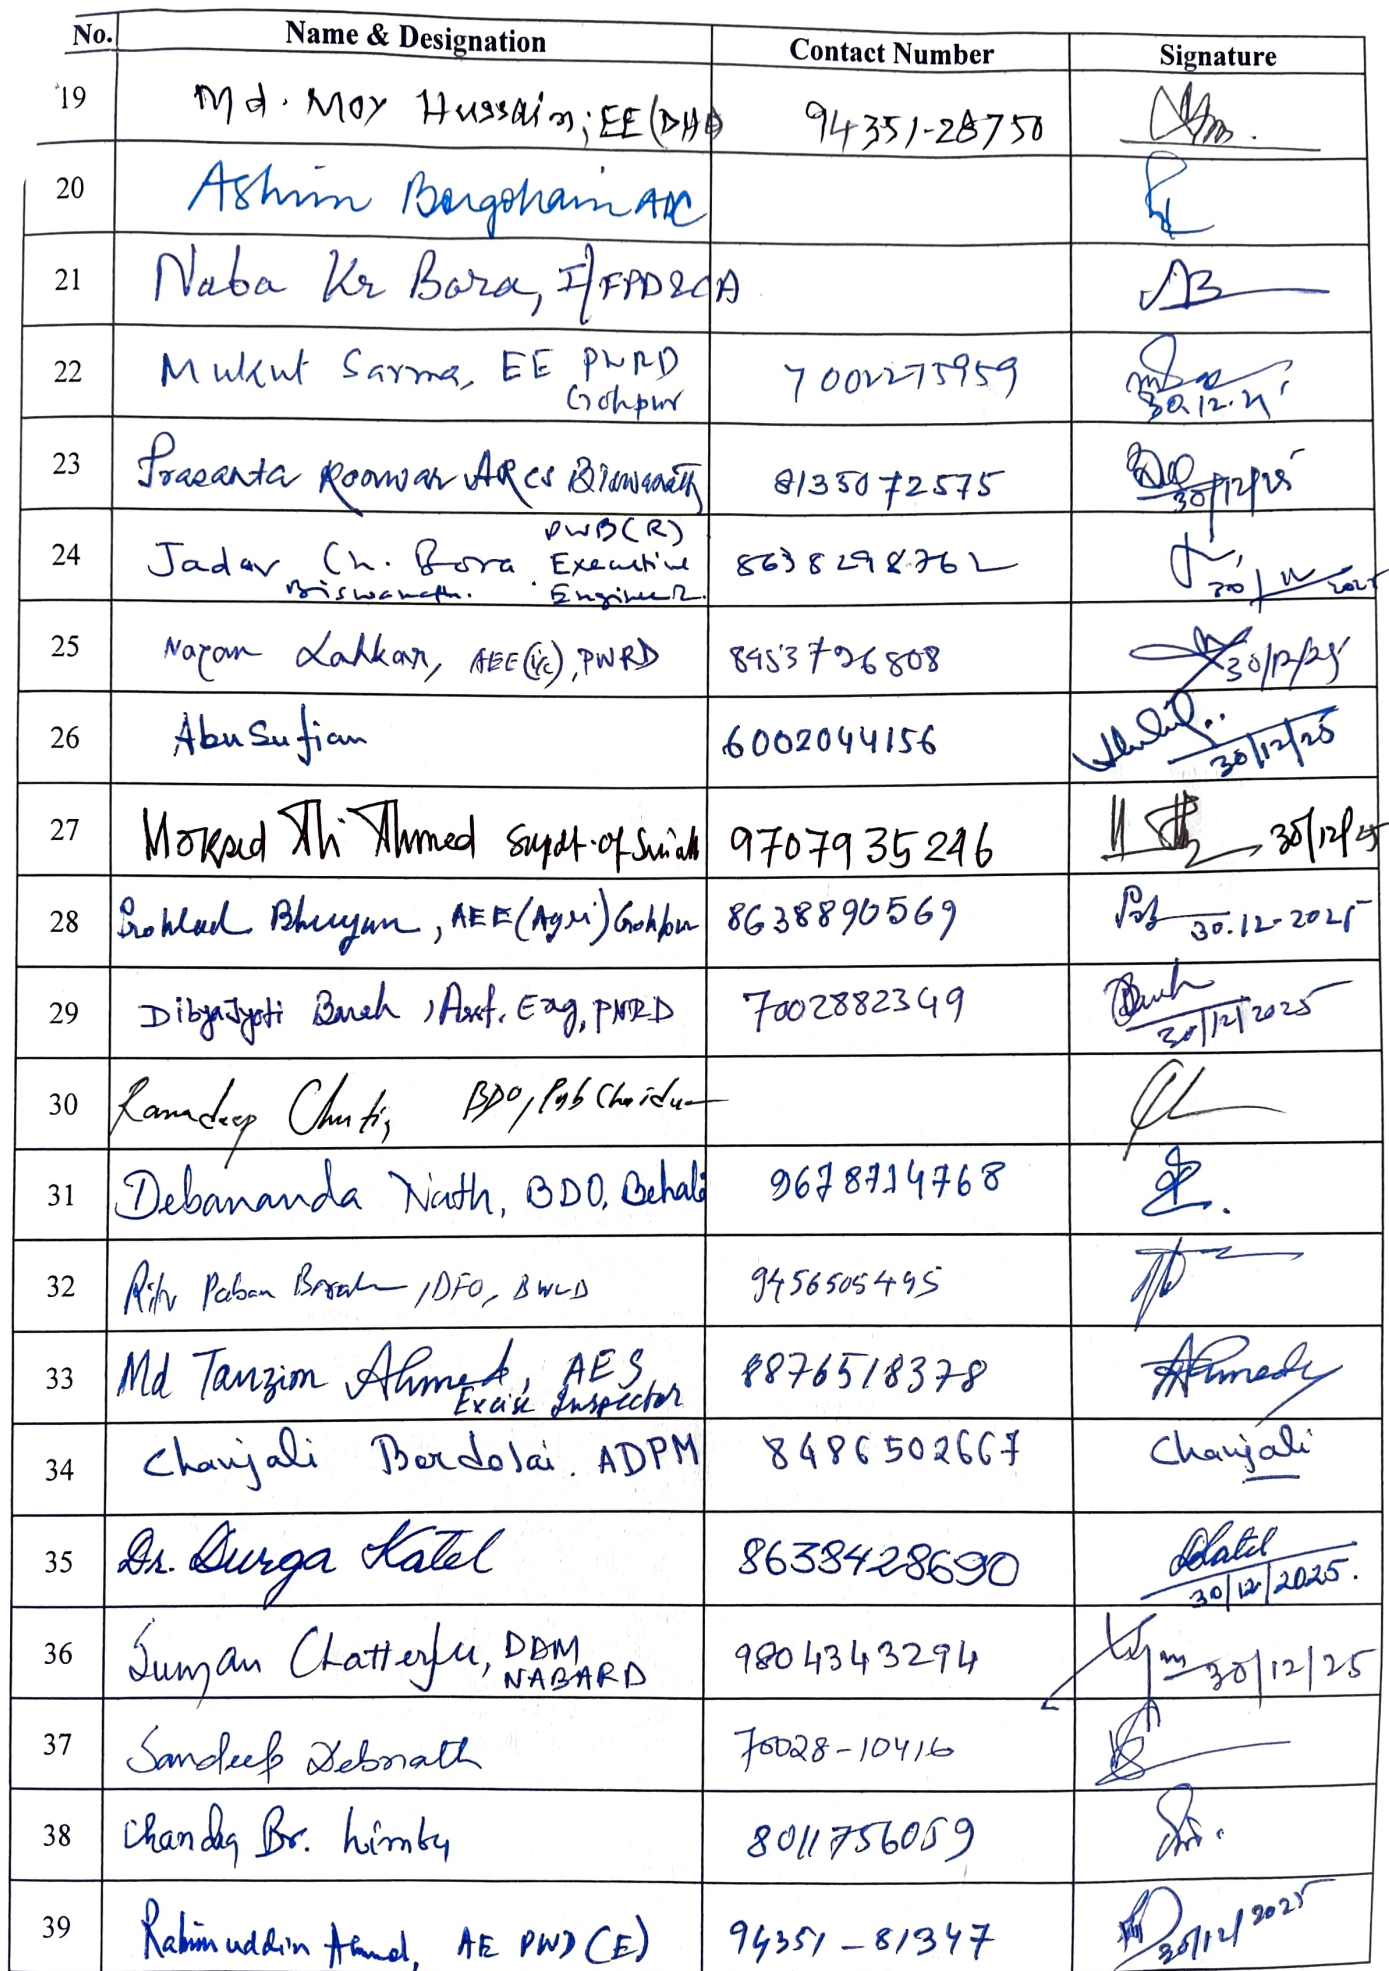 No. Name & Designation Contact Number Signature
19 Md. Moy Hussain, EE (DHD 94351-28750
20 Ashim Borgohain ADC
21 Naba Kr Bora, I/FPD&CA AB
22 Mukut Sarma, EE PWRD 7002275959
Gohpur 30.12.25
23 Prasanta Koonwar ARCS Biswanath 8135072575 30/12/25
24 Jadav Ch. Bora PWD(R) 8638298762
Executive
Biswanath. Engineer. 30/12/2025
25 Nayan Lahkar, AEE (i/c), PWRD 8453796808 30/12/25
26 Abu Sufian 6002044156 30/12/25
27 Moksed Ali Ahmed Supdt. of 9707935246 30/12/25
28 Prohlad Bhuyan, AEE (Agri) Gohpur 8638890569 30.12.2025
29 Dibyajyoti Borah, Asst. Eng, PWRD 7002882349 30/12/2025
30 Ramdeep Chutia, BDO, Pub Chaiduar
31 Debananda Nath, BDO, Behali 9678714768
32 Ritu Paban Borah, DFO, BWLD 9456505495
33 Md Tanzim Ahmed, AES 8876518378 Ahmed
Excise Inspector
34 Chayjali Bordoloi. ADPM 8486502667 Chayjali
35 Dr. Durga Katel 8638428690 DKatel
30/12/2025.
36 Suman Chatterjee, DDM 9804343294 30/12/25
NABARD
37 Sandeep Debnath 70028-10416
38 Chandra Br. Limbu 8011756059
39 Rahim uddin Ahmed, AE PWD (E) 94351-81347 30/12/2025